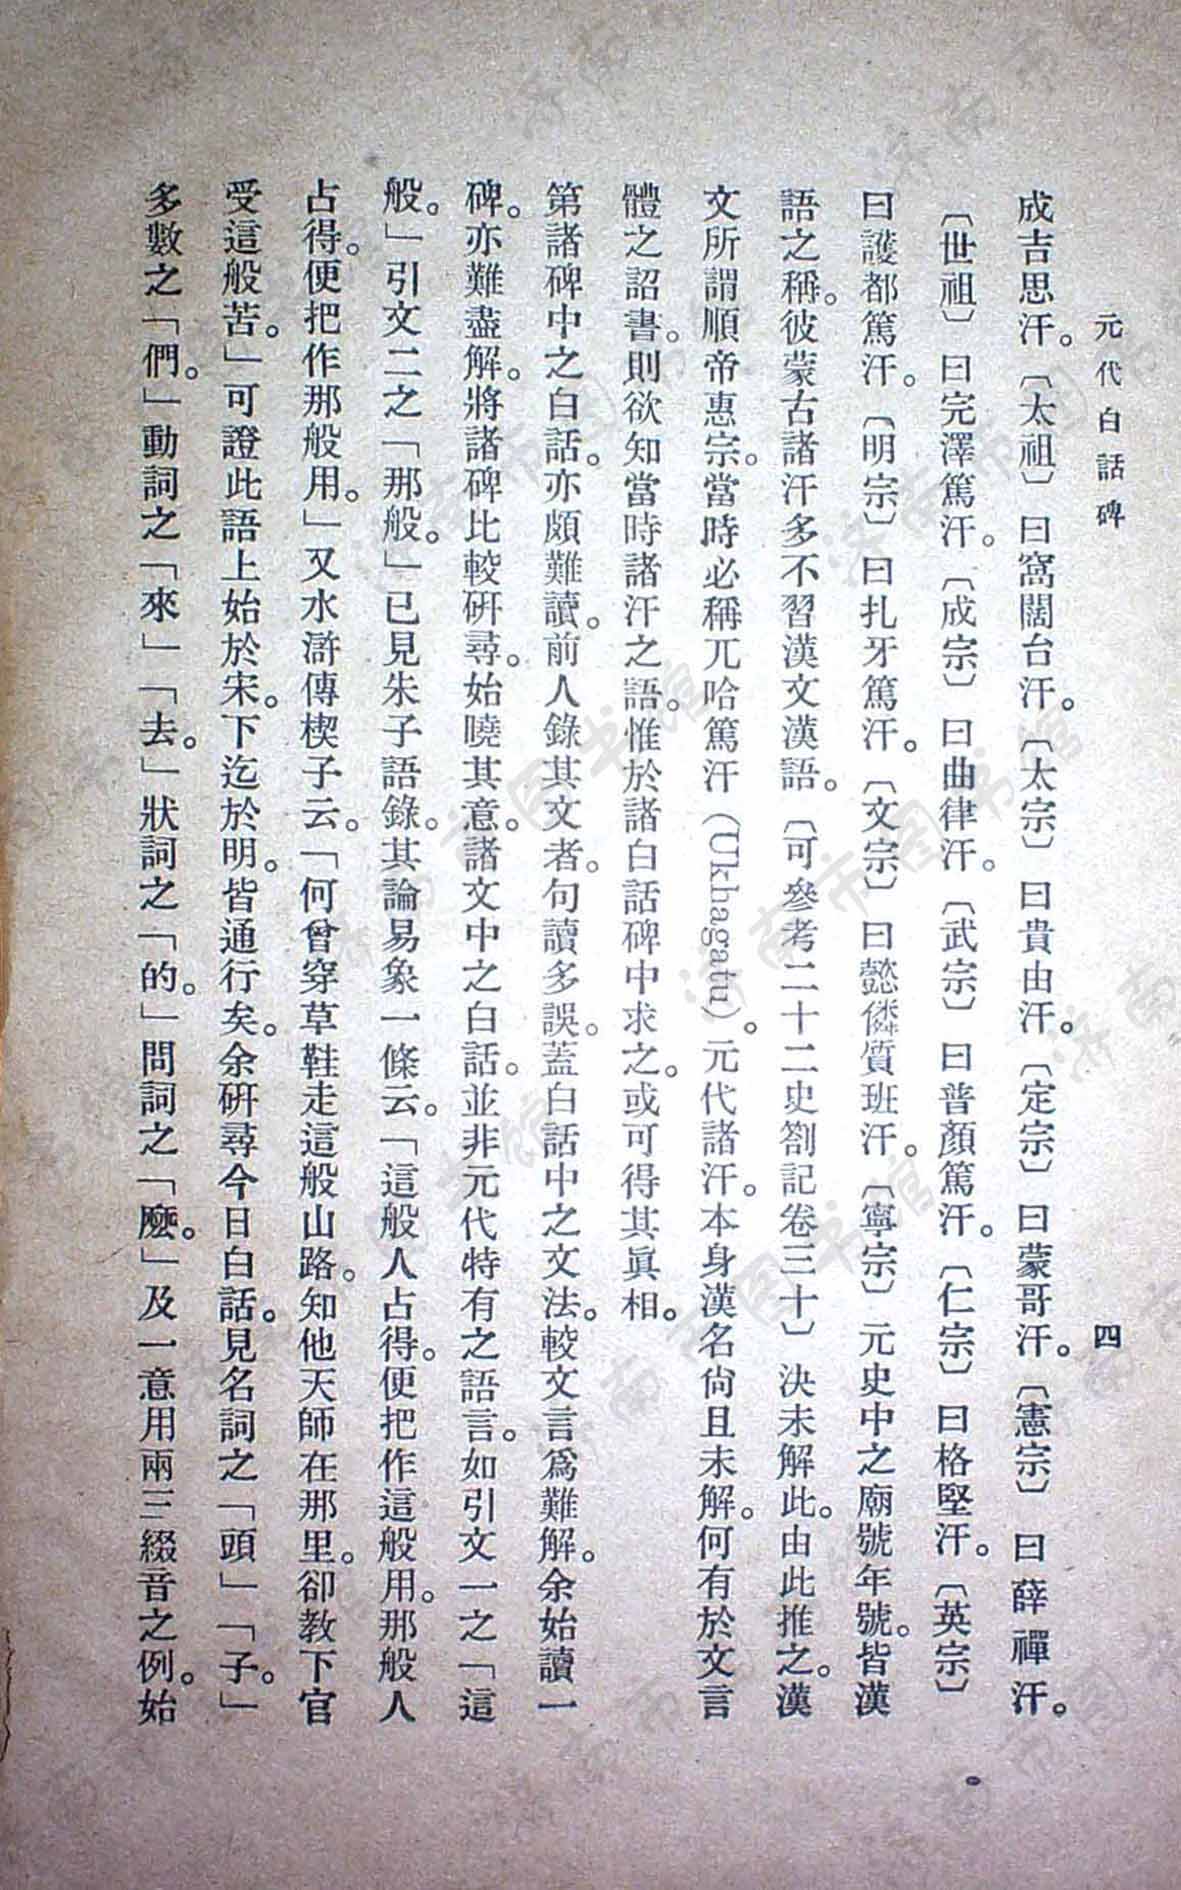 元代白話碑
四
成吉思汗。〔太祖〕曰窩闊台汗。〔太宗〕曰貴由汗。〔定宗〕曰蒙哥汗。〔憲宗〕曰薛禪汗。
〔世祖〕曰完澤篤汗。〔成宗〕曰曲律汗。〔武宗〕曰普顏篤汗。〔仁宗〕曰格堅汗。〔英宗〕
曰護都篤汗。〔明宗〕曰扎牙篤汗。〔文宗〕曰懿憐質班汗。〔寧宗〕元史中之廟號年號。皆漢
語之稱。彼蒙古諸汗多不習漢文漢語。〔可參考二十二史劄記卷三十〕決未解此。由此推之。漢
文所謂順帝惠宗。當時必稱兀哈篤汗(Ukhagatu)。元代諸汗。本身漢名尙且未解。何有於文言
體之詔書。則欲知當時諸汗之語。惟於諸白話碑中求之。或可得其眞相。
第諸碑中之白話。亦頗難讀。前人錄其文者。句讀多誤。蓋白話中之文法。較文言爲難解。余始讀一
碑。亦難盡解。將諸碑比較研尋。始曉其意。諸文中之白話。並非元代特有之語言。如引文一之「這
般。」引文二之「那般。」已見朱子語錄。其論易象一條云。「這般人占得。便把作這般用。那般人
占得。便把作那般用。」又水滸傳楔子云。「何曾穿草鞋走這般山路。知他天師在那里。卻教下官
受這般苦。」可證此語上始於宋。下迄於明。皆通行矣。余研尋今日白話。見名詞之「頭」「子。」
多數之「們。」動詞之「來」「去。」狀詞之「的。」問詞之「麼。」及一意用兩三綴音之例。始